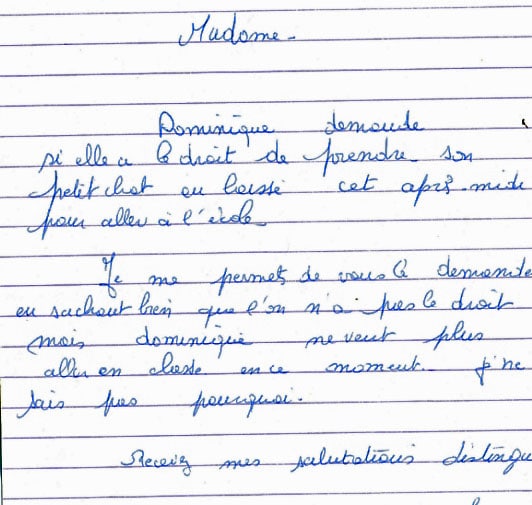 Madame.
Dominique demande
si elle a le droit de prendre son
petit chat en classe cet aprs-midi
pour aller à l'école
Je me permets de vous le demande
en sachant bien que l'on n'a pas le droit
mais dominique ne veut plus
aller en classe en ce moment. je ne
sais pas pourquoi.
Recevez mes salutations distingu